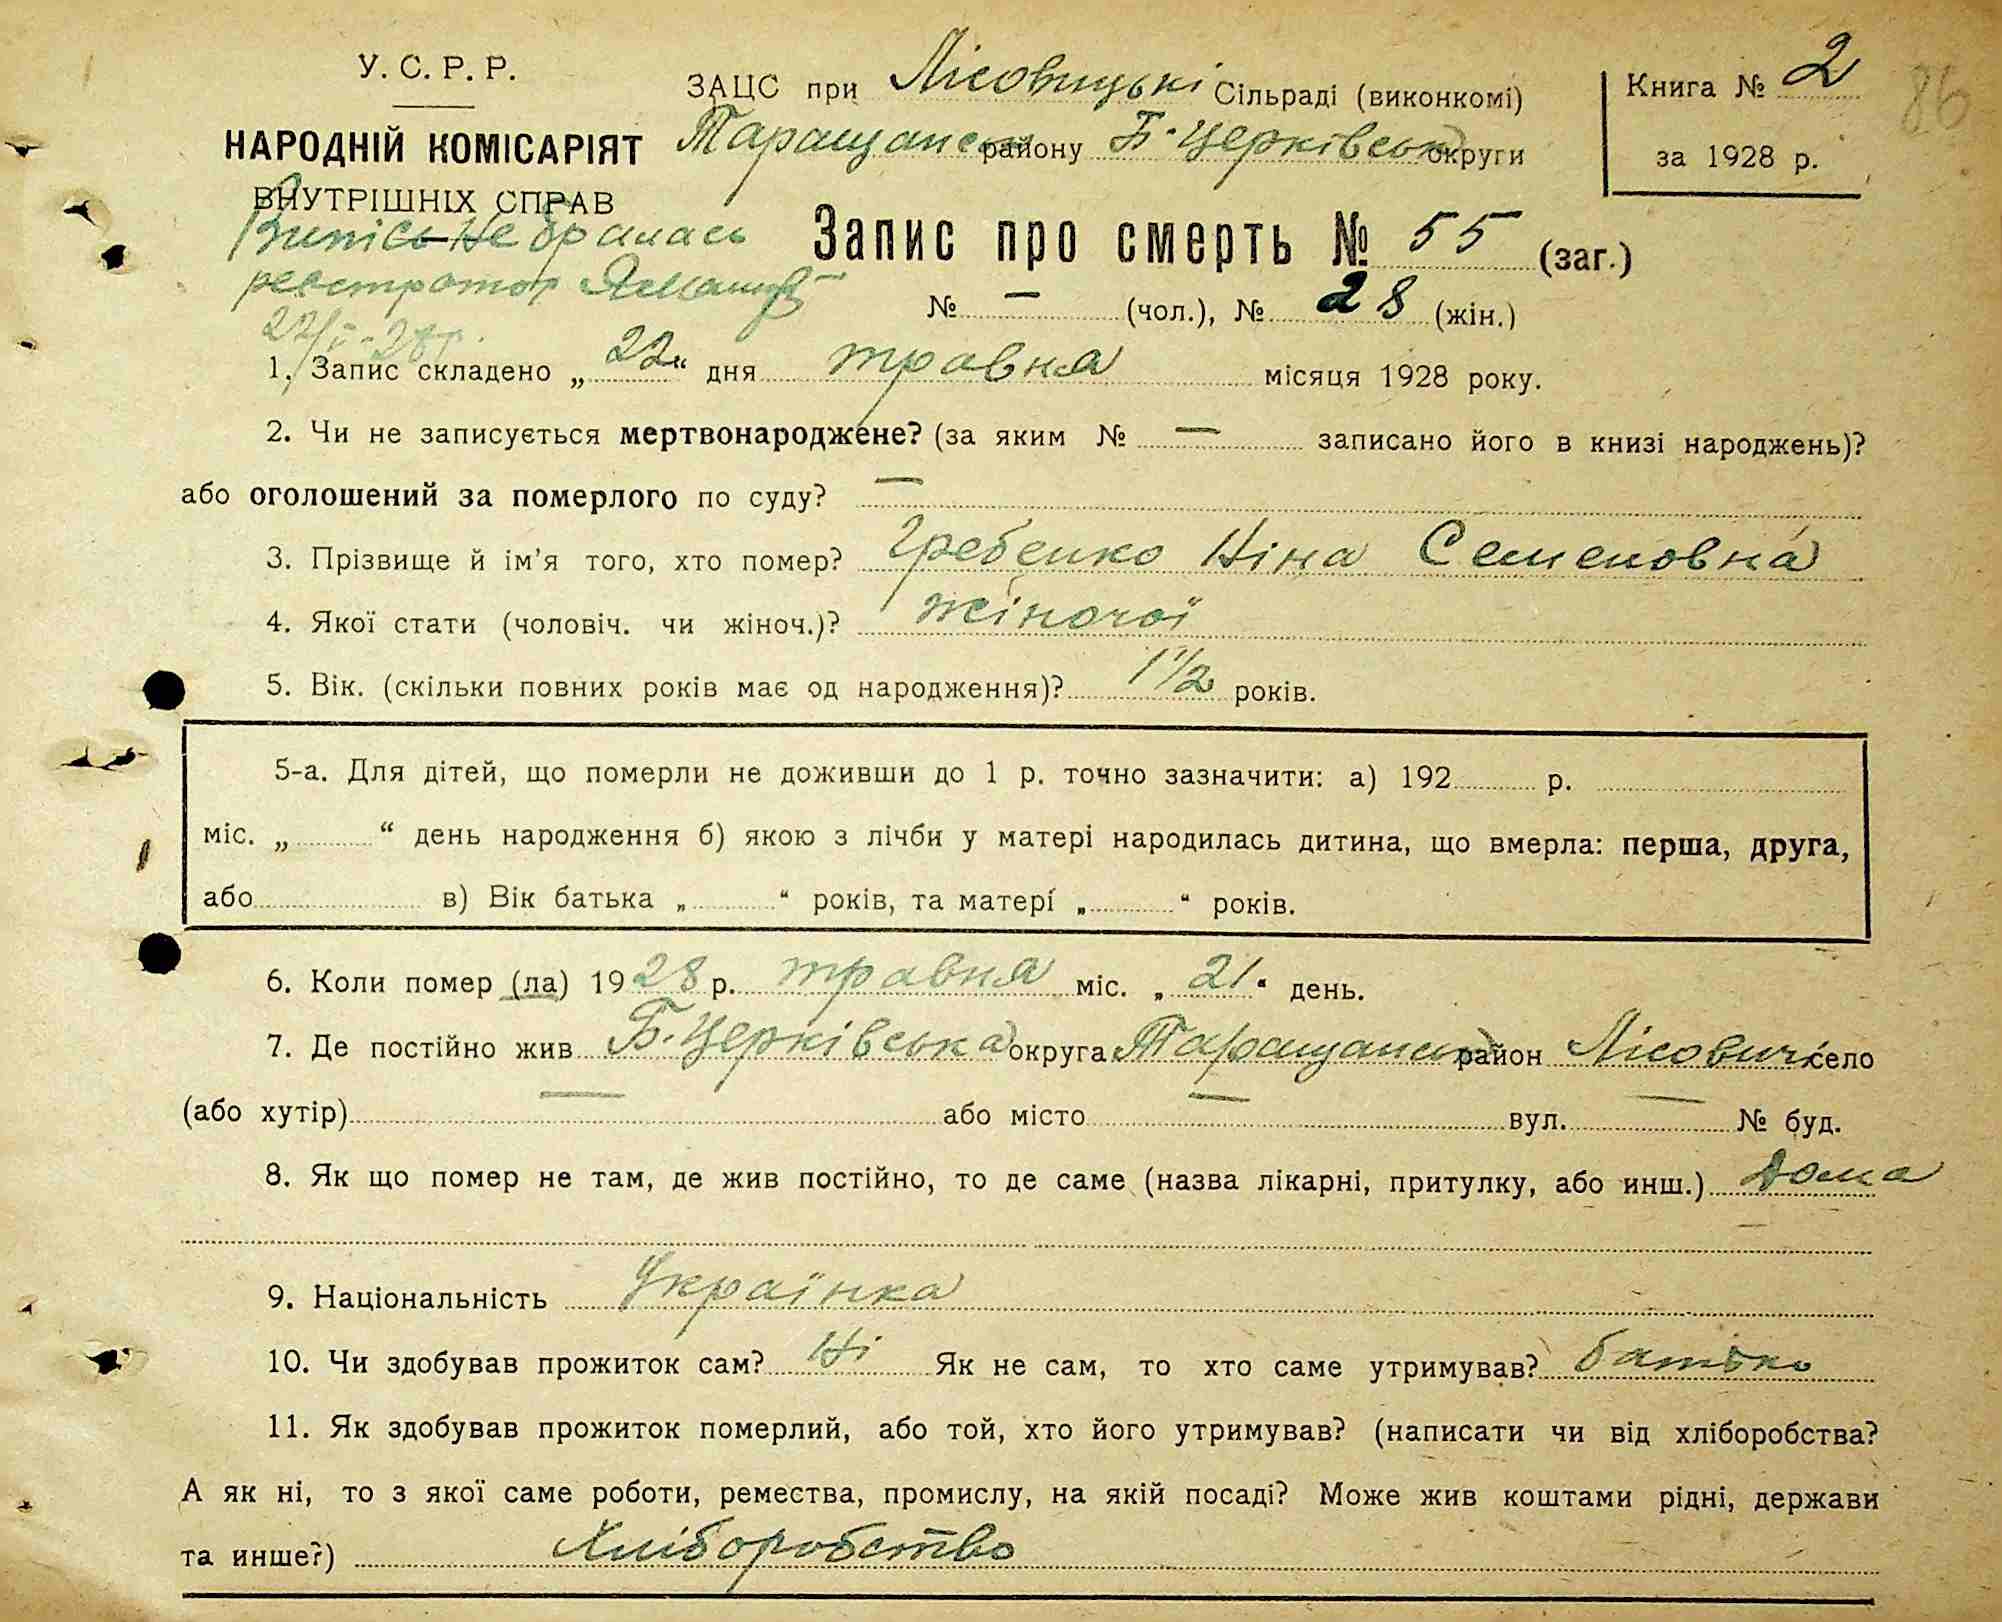 У. С. Р. Р.
НАРОДНІЙ КОМІСАРІЯТ
ВНУТРІШНІХ СПРАВ
ЗАЦС при Лісовицькі Сільраді (виконкомі)
Таращанськ району Б-Церківськ округи
Книга № 2
за 1928 р.
86
Випісь не бралась
реєстратор
22/V-28р.
Запис про смерть № 55 (заг.)
№ — (чол.), № 28 (жін.)
1. Запис складено „22“ дня травня місяця 1928 року.
2. Чи не записується мертвонароджене? (за яким № — записано його в книзі народжень)?
або оголошений за померлого по суду? —
3. Прізвище й ім'я того, хто помер? Гребенко Ніна Семеновна
4. Якої стати (чоловіч. чи жіноч.)? жіночої
5. Вік. (скільки повних років має од народження)? 1 1/2 років.
5-а. Для дітей, що померли не доживши до 1 р. точно зазначити: а) 192 р.
міс. „ “ день народження б) якою з лічби у матері народилась дитина, що вмерла: перша, друга,
або в) Вік батька „ “ років, та матері „ “ років.
6. Коли помер (ла) 1928 р. травня міс. „21“ день.
7. Де постійно жив Б-Церківська округа Таращанськ район Лісовичі село
(або хутір) — або місто — вул. — № буд.
8. Як що помер не там, де жив постійно, то де саме (назва лікарні, притулку, або инш.) Дома
9. Національність Українка
10. Чи здобував прожиток сам? Ні Як не сам, то хто саме утримував? батько
11. Як здобував прожиток померлий, або той, хто його утримував? (написати чи від хліборобства?
А як ні, то з якої саме роботи, ремества, промислу, на якій посаді? Може жив коштами рідні, держави
та инше?) Хліборобство